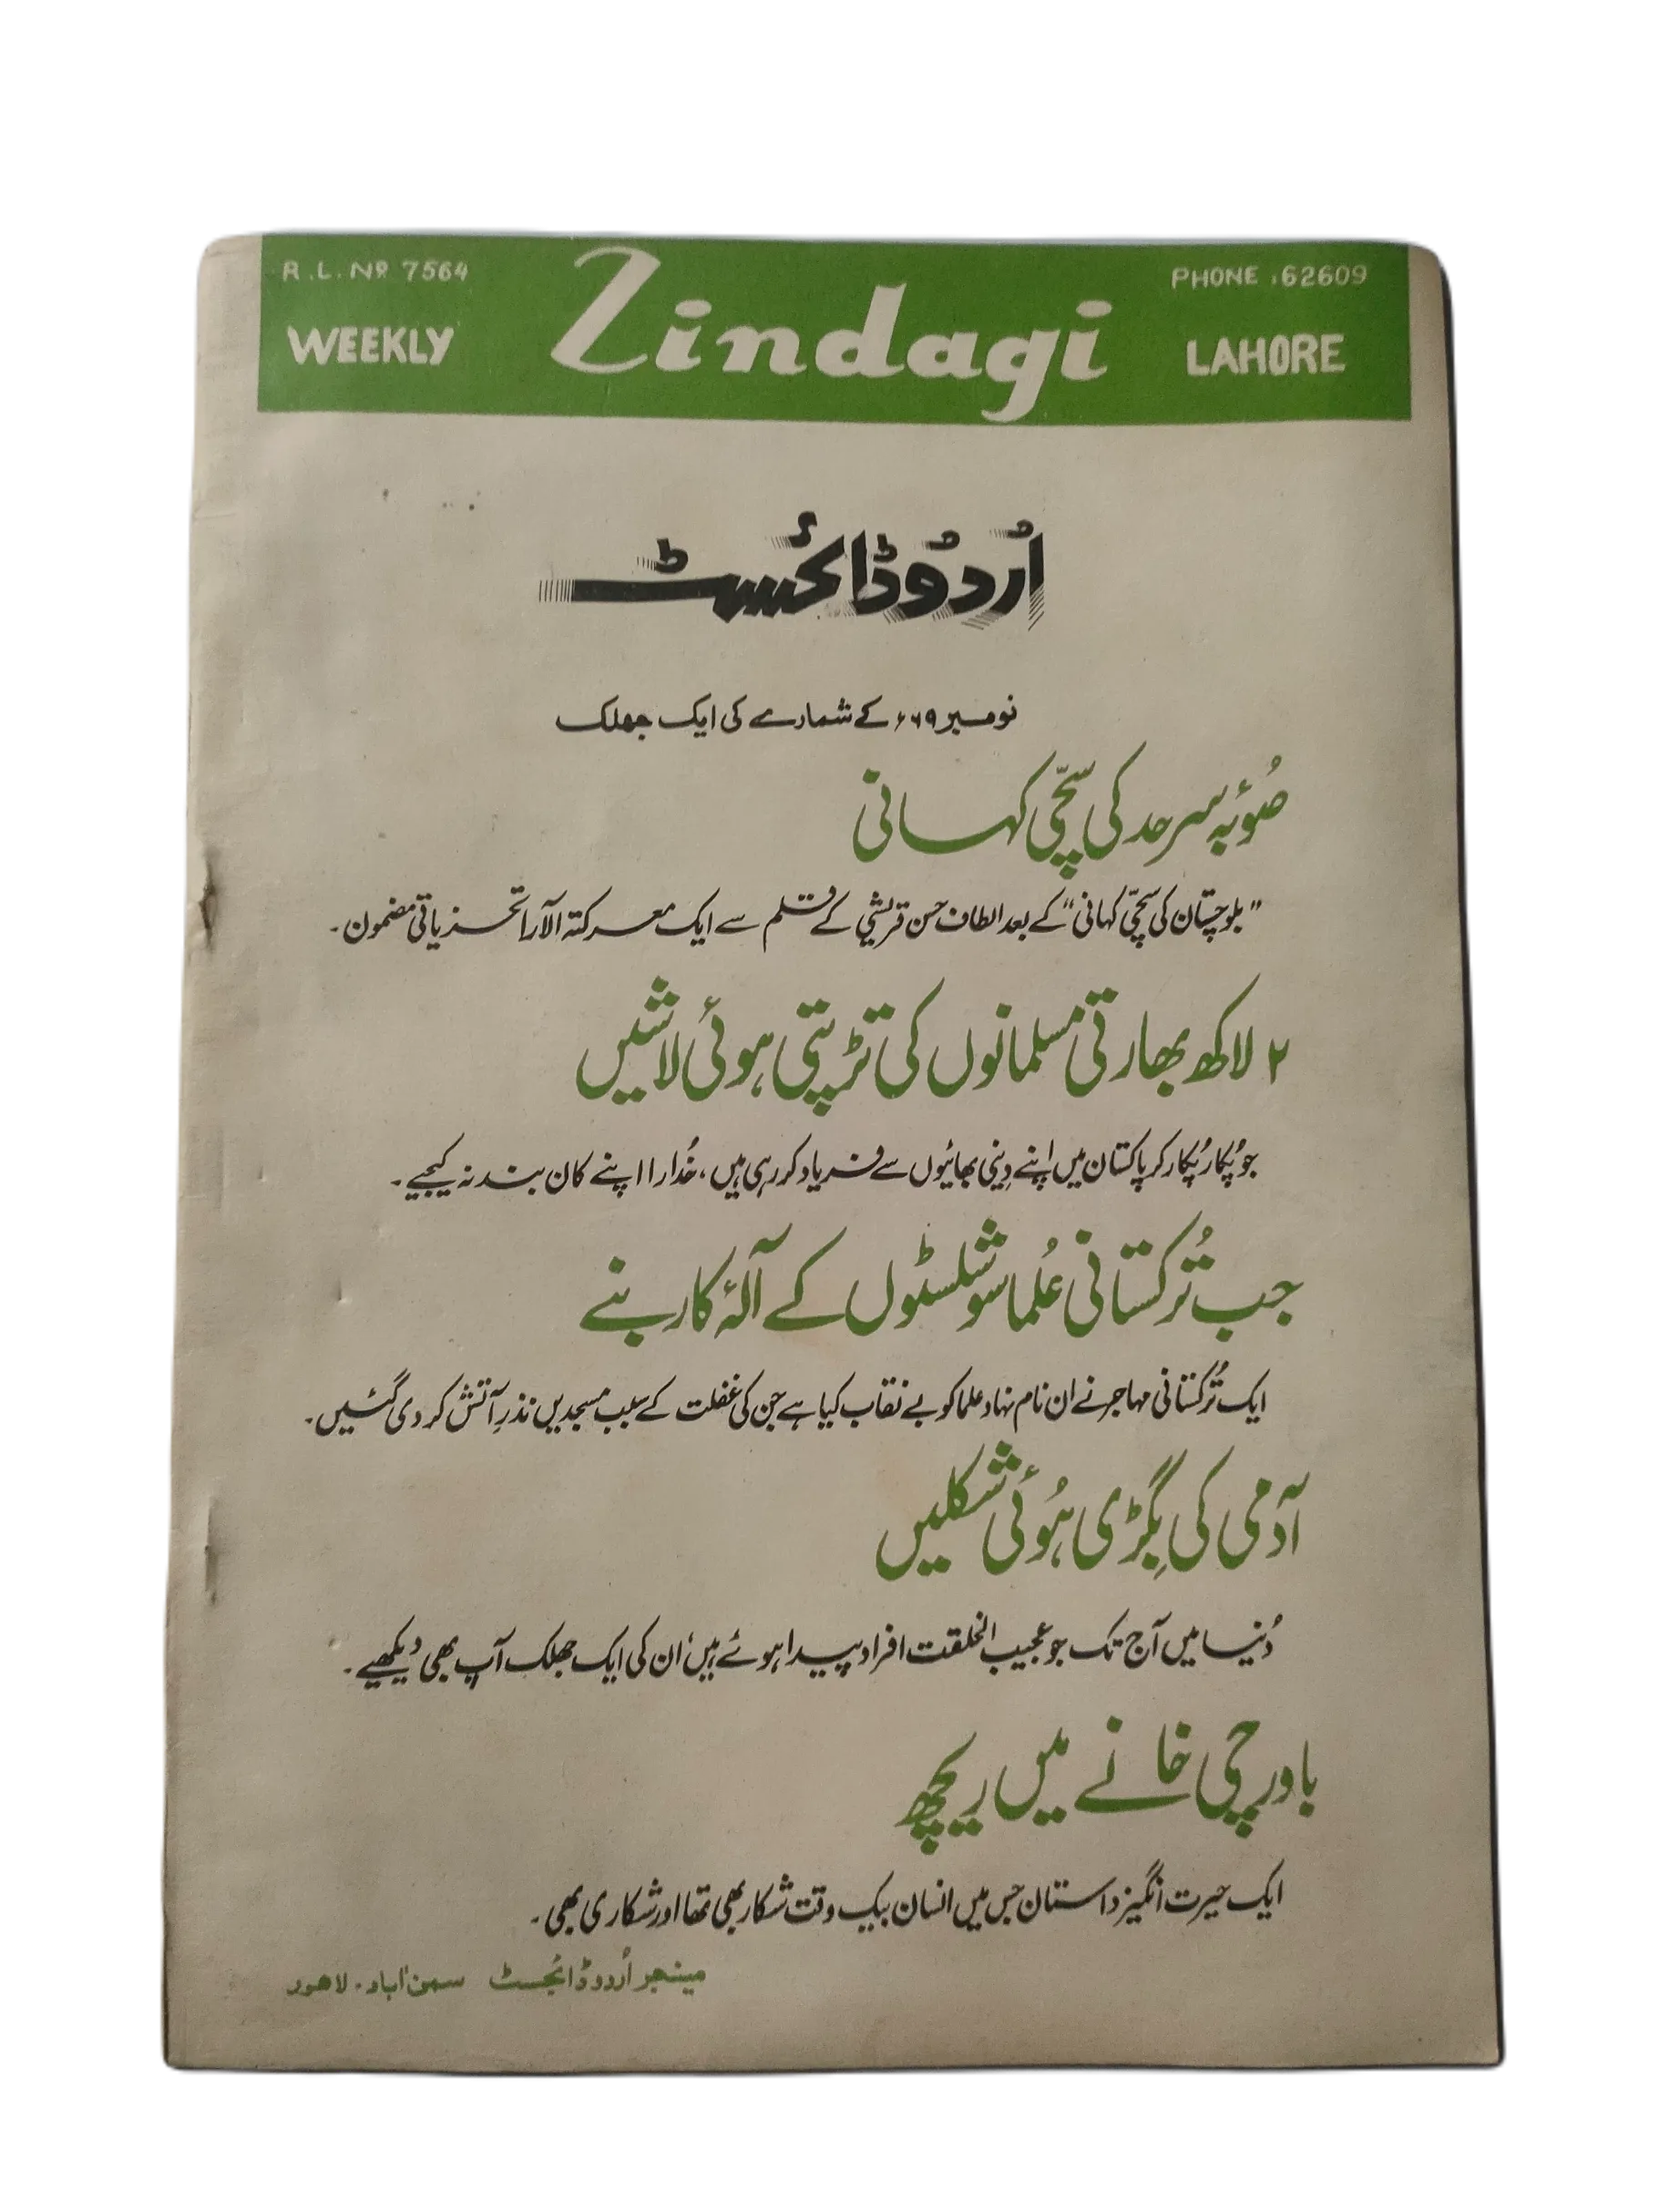 R.L. No 7564
PHONE : 62609
WEEKLY Zindagi LAHORE
اُردُو ڈائجسٹ
نومبر ۶۹ء کے شمارے کی ایک جھلک
صُوبہ سرحد کی سچّی کہانی
"بلوچستان کی سچّی کہانی" کے بعد الطاف حسن قریشی کے قلم سے ایک معرکتہ الآرا تجزیاتی مضمون۔
۲ لاکھ بھارتی مسلمانوں کی تڑپتی ہوئی لاشیں
جو پُکار پُکار کر پاکستان میں اپنے دِینی بھائیوں سے فریاد کر رہی ہیں، خُدارا اپنے کان بند نہ کیجیے۔
جب تُرکستانی عُلما سوشلسٹوں کے آلۂ کار بنے
ایک تُرکستانی مہاجر نے ان نام نہاد علما کو بے نقاب کیا ہے جن کی غفلت کے سبب مسجدیں نذرِ آتش کر دی گئیں۔
آدمی کی بِگڑی ہُوئی شکلیں
دُنیا میں آج تک جو عجیب الخلقت افراد پیدا ہوئے ہیں، ان کی ایک جھلک آپ بھی دیکھیے۔
باورچی خانے میں ریچھ
ایک حیرت انگیز داستان جس میں انسان بیک وقت شکار بھی تھا اور شکاری بھی۔
مینجر اُردو ڈائجسٹ سمن آباد۔ لاہور